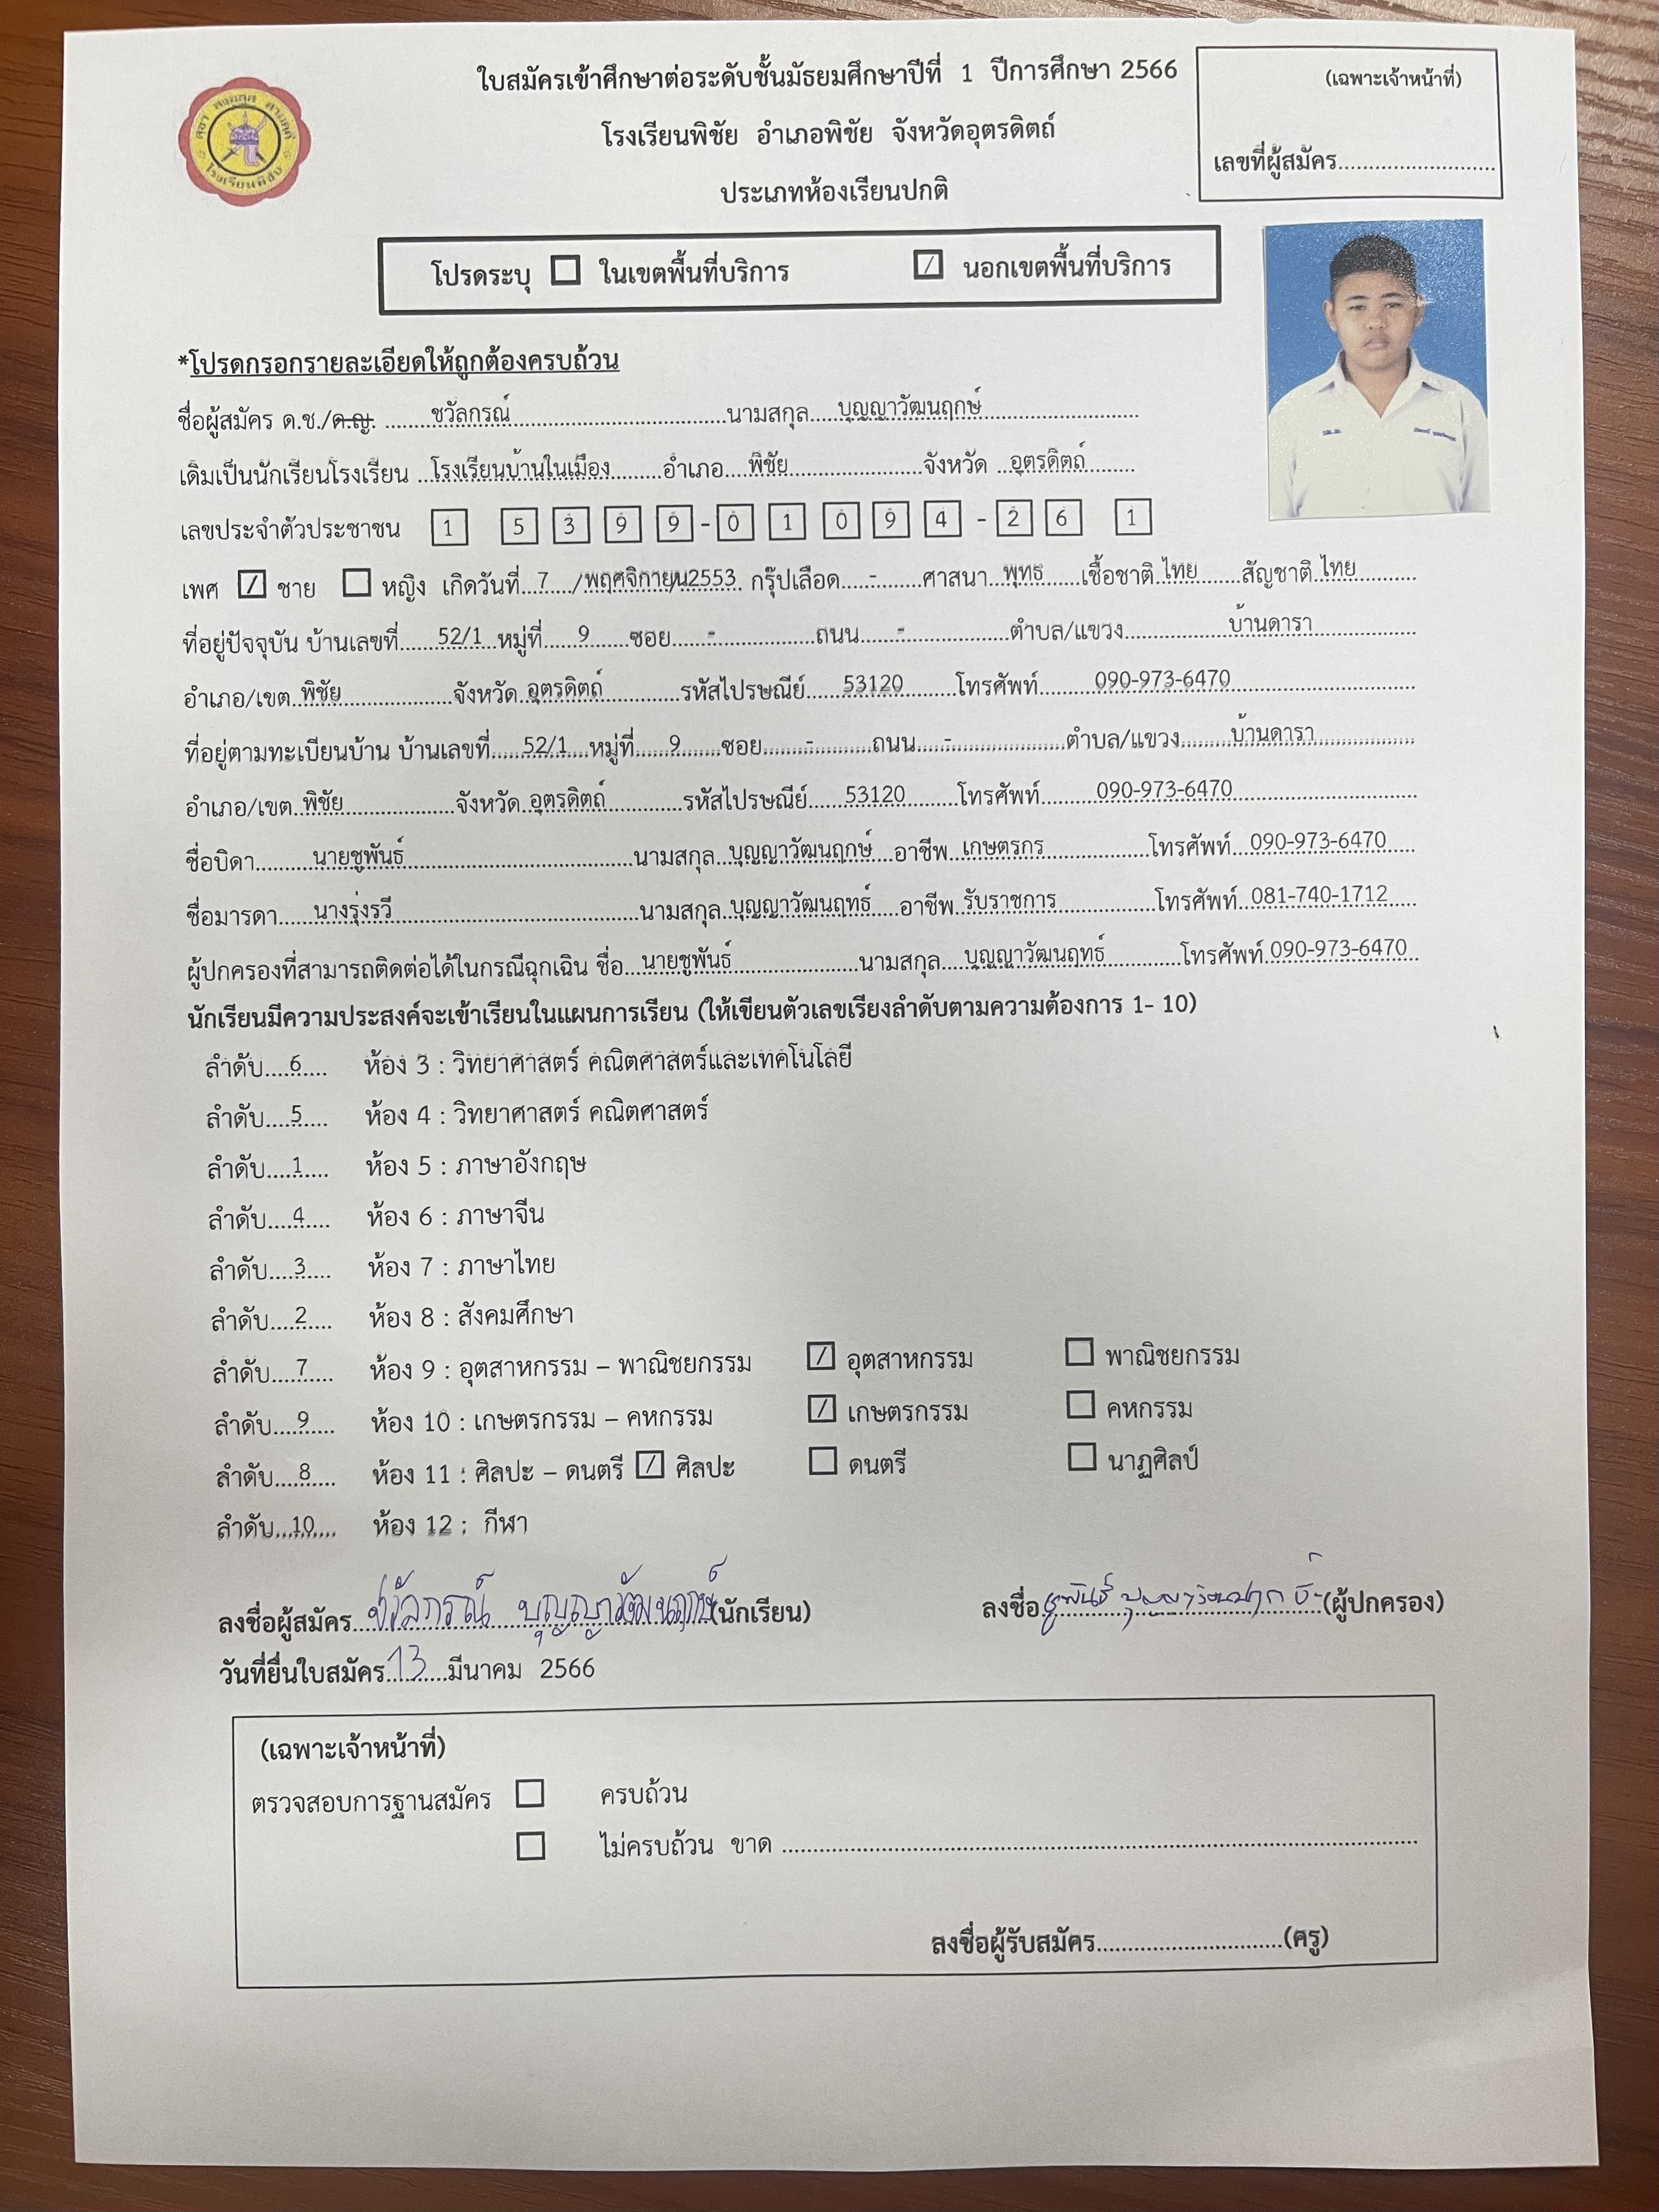 ใบสมัครเข้าศึกษาต่อระดับชั้นมัธยมศึกษาปีที่ 1 ปีการศึกษา 2566
(เฉพาะเจ้าหน้าที่)
โรงเรียนพิชัย อำเภอพิชัย จังหวัดอุตรดิตถ์
เลขที่ผู้สมัคร..........................
ประเภทห้องเรียนปกติ
โปรดระบุ ☐ ในเขตพื้นที่บริการ ☑ นอกเขตพื้นที่บริการ
*โปรดกรอกรายละเอียดให้ถูกต้องครบถ้วน
ชื่อผู้สมัคร ด.ช./ด.ญ. ชวัลกรณ์ นามสกุล บุญญาวัฒนฤกษ์
เดิมเป็นนักเรียนโรงเรียน โรงเรียนบ้านในเมือง อำเภอ พิชัย จังหวัด อุตรดิตถ์
เลขประจำตัวประชาชน 1 5 3 9 9 - 0 1 0 9 4 - 2 6 1
เพศ ☑ ชาย ☐ หญิง เกิดวันที่ 7 /พฤศจิกายน2553 กรุ๊ปเลือด - ศาสนา พุทธ เชื้อชาติ ไทย สัญชาติ ไทย
ที่อยู่ปัจจุบัน บ้านเลขที่ 52/1 หมู่ที่ 9 ซอย - ถนน - ตำบล/แขวง บ้านดารา
อำเภอ/เขต พิชัย จังหวัด อุตรดิตถ์ รหัสไปรษณีย์ 53120 โทรศัพท์ 090-973-6470
ที่อยู่ตามทะเบียนบ้าน บ้านเลขที่ 52/1 หมู่ที่ 9 ซอย - ถนน - ตำบล/แขวง บ้านดารา
อำเภอ/เขต พิชัย จังหวัด อุตรดิตถ์ รหัสไปรษณีย์ 53120 โทรศัพท์ 090-973-6470
ชื่อบิดา นายชูพันธ์ นามสกุล บุญญาวัฒนฤกษ์ อาชีพ เกษตรกร โทรศัพท์ 090-973-6470
ชื่อมารดา นางรุ่งรวี นามสกุล บุญญาวัฒนฤทธ์ อาชีพ รับราชการ โทรศัพท์ 081-740-1712
ผู้ปกครองที่สามารถติดต่อได้ในกรณีฉุกเฉิน ชื่อ นายชูพันธ์ นามสกุล บุญญาวัฒนฤทธ์ โทรศัพท์ 090-973-6470
นักเรียนมีความประสงค์จะเข้าเรียนในแผนการเรียน (ให้เขียนตัวเลขเรียงลำดับตามความต้องการ 1- 10)
ลำดับ 6 ห้อง 3 : วิทยาศาสตร์ คณิตศาสตร์และเทคโนโลยี
ลำดับ 5 ห้อง 4 : วิทยาศาสตร์ คณิตศาสตร์
ลำดับ 1 ห้อง 5 : ภาษาอังกฤษ
ลำดับ 4 ห้อง 6 : ภาษาจีน
ลำดับ 3 ห้อง 7 : ภาษาไทย
ลำดับ 2 ห้อง 8 : สังคมศึกษา
ลำดับ 7 ห้อง 9 : อุตสาหกรรม – พาณิชยกรรม ☑ อุตสาหกรรม ☐ พาณิชยกรรม
ลำดับ 9 ห้อง 10 : เกษตรกรรม – คหกรรม ☑ เกษตรกรรม ☐ คหกรรม
ลำดับ 8 ห้อง 11 : ศิลปะ – ดนตรี ☑ ศิลปะ ☐ ดนตรี ☐ นาฏศิลป์
ลำดับ 10 ห้อง 12 : กีฬา
ลงชื่อผู้สมัคร ชวัลกรณ์ บุญญาวัฒนฤกษ์ (นักเรียน) ลงชื่อ ชูพันธ์ (ผู้ปกครอง)
วันที่ยื่นใบสมัคร 13 มีนาคม 2566
(เฉพาะเจ้าหน้าที่)
ตรวจสอบการฐานสมัคร ☐ ครบถ้วน
☐ ไม่ครบถ้วน ขาด ..........................
ลงชื่อผู้รับสมัคร..........................(ครู)